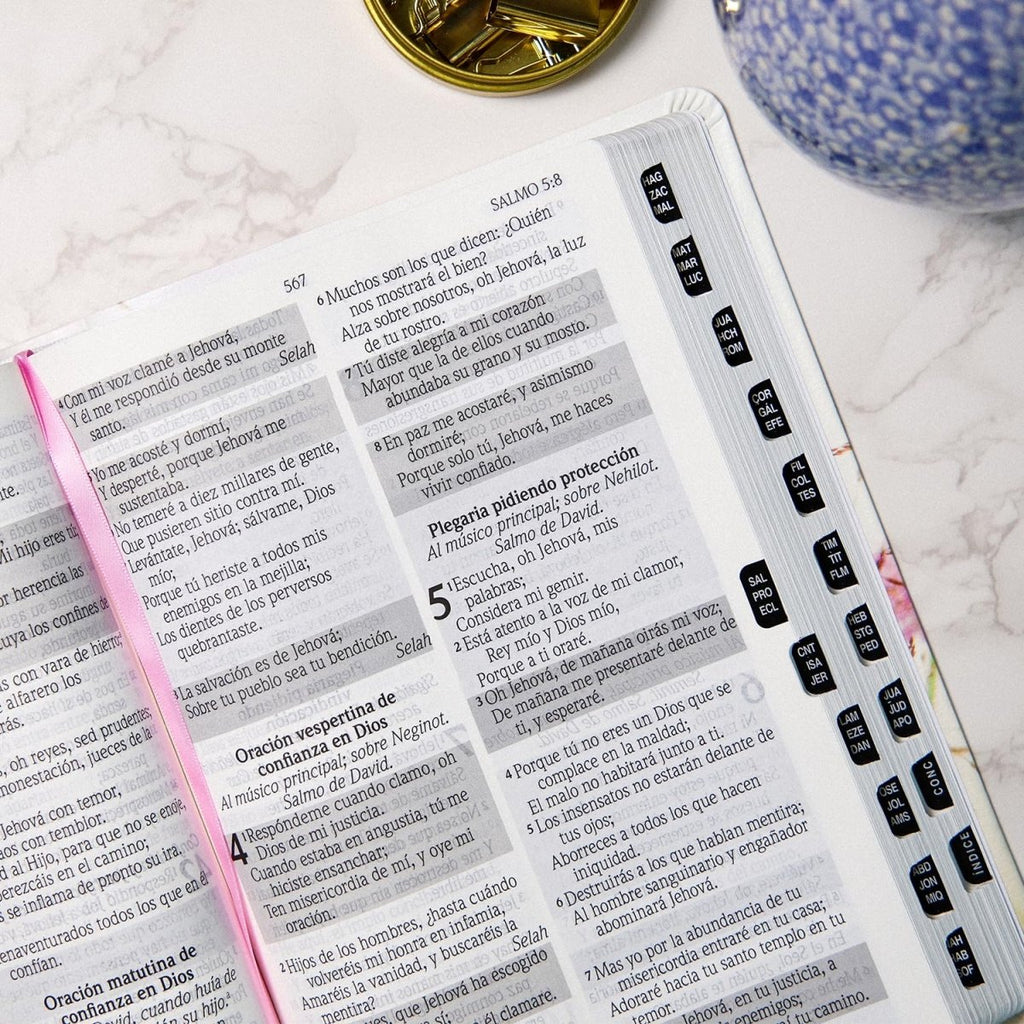 te.
Mi hijo eres tú;
or herencia las
uya los confines de
s con vara de hierro;
alfarero los
rás.
, oh reyes, sed prudentes;
onestación, jueces de la
Jehová con temor,
os con temblor.
d al Hijo, para que no se enoje,
erezcáis en el camino;
s se inflama de pronto su ira.
enaventurados todos los que en él
confían.
Oración matutina de
confianza en Dios
David, cuando huía de
ón su hijo.
567
4Con mi voz clamé a Jehová,
Y él me respondió desde su monte
santo. Selah
5Yo me acosté y dormí,
Y desperté, porque Jehová me
sustentaba.
No temeré a diez millares de gente,
Que pusieren sitio contra mí.
Levántate, Jehová; sálvame, Dios
mío;
Porque tú heriste a todos mis
enemigos en la mejilla;
Los dientes de los perversos
quebrantaste.
La salvación es de Jehová;
Sobre tu pueblo sea tu bendición.
Selah
Oración vespertina de
confianza en Dios
Al músico principal; sobre Neginot.
Salmo de David.
4 1Respóndeme cuando clamo, oh
Dios de mi justicia.
Cuando estaba en angustia, tú me
hiciste ensanchar;
Ten misericordia de mí, y oye mi
oración.
2Hijos de los hombres, ¿hasta cuándo
volveréis mi honra en infamia,
Amaréis la vanidad, y buscaréis la
mentira? Selah
, que Jehová ha escogido
él clamare.
SALMO 5:8
6Muchos son los que dicen: ¿Quién
nos mostrará el bien?
Alza sobre nosotros, oh Jehová, la luz
de tu rostro.
7Tú diste alegría a mi corazón
Mayor que la de ellos cuando
abundaba su grano y su mosto.
8En paz me acostaré, y asimismo
dormiré;
Porque solo tú, Jehová, me haces
vivir confiado.
Plegaria pidiendo protección
Al músico principal; sobre Nehilot.
Salmo de David.
5 1Escucha, oh Jehová, mis
palabras;
Considera mi gemir.
2Está atento a la voz de mi clamor,
Rey mío y Dios mío,
Porque a ti oraré.
3Oh Jehová, de mañana oirás mi voz;
De mañana me presentaré delante de
ti, y esperaré.
4Porque tú no eres un Dios que se
complace en la maldad;
El malo no habitará junto a ti.
5Los insensatos no estarán delante de
tus ojos;
Aborreces a todos los que hacen
iniquidad.
6Destruirás a los que hablan mentira;
Al hombre sanguinario y engañador
abominará Jehová.
7Mas yo por la abundancia de tu
misericordia entraré en tu casa;
Adoraré hacia tu santo templo en tu
Jehová, en tu justicia, a
enemigos;
tu camino.
HAG
ZAC
MAL
MAT
MAR
LUC
JUA
HCH
ROM
COR
GÁL
EFE
FIL
COL
TES
TIM
TIT
FLM
HEB
STG
PED
JUA
JUD
APO
CONC
ÍNDICE
SAL
PRO
ECL
CNT
ISA
JER
LAM
EZE
DAN
OSE
JOL
AMS
ABD
JON
MIQ
NAH
HAB
SOF